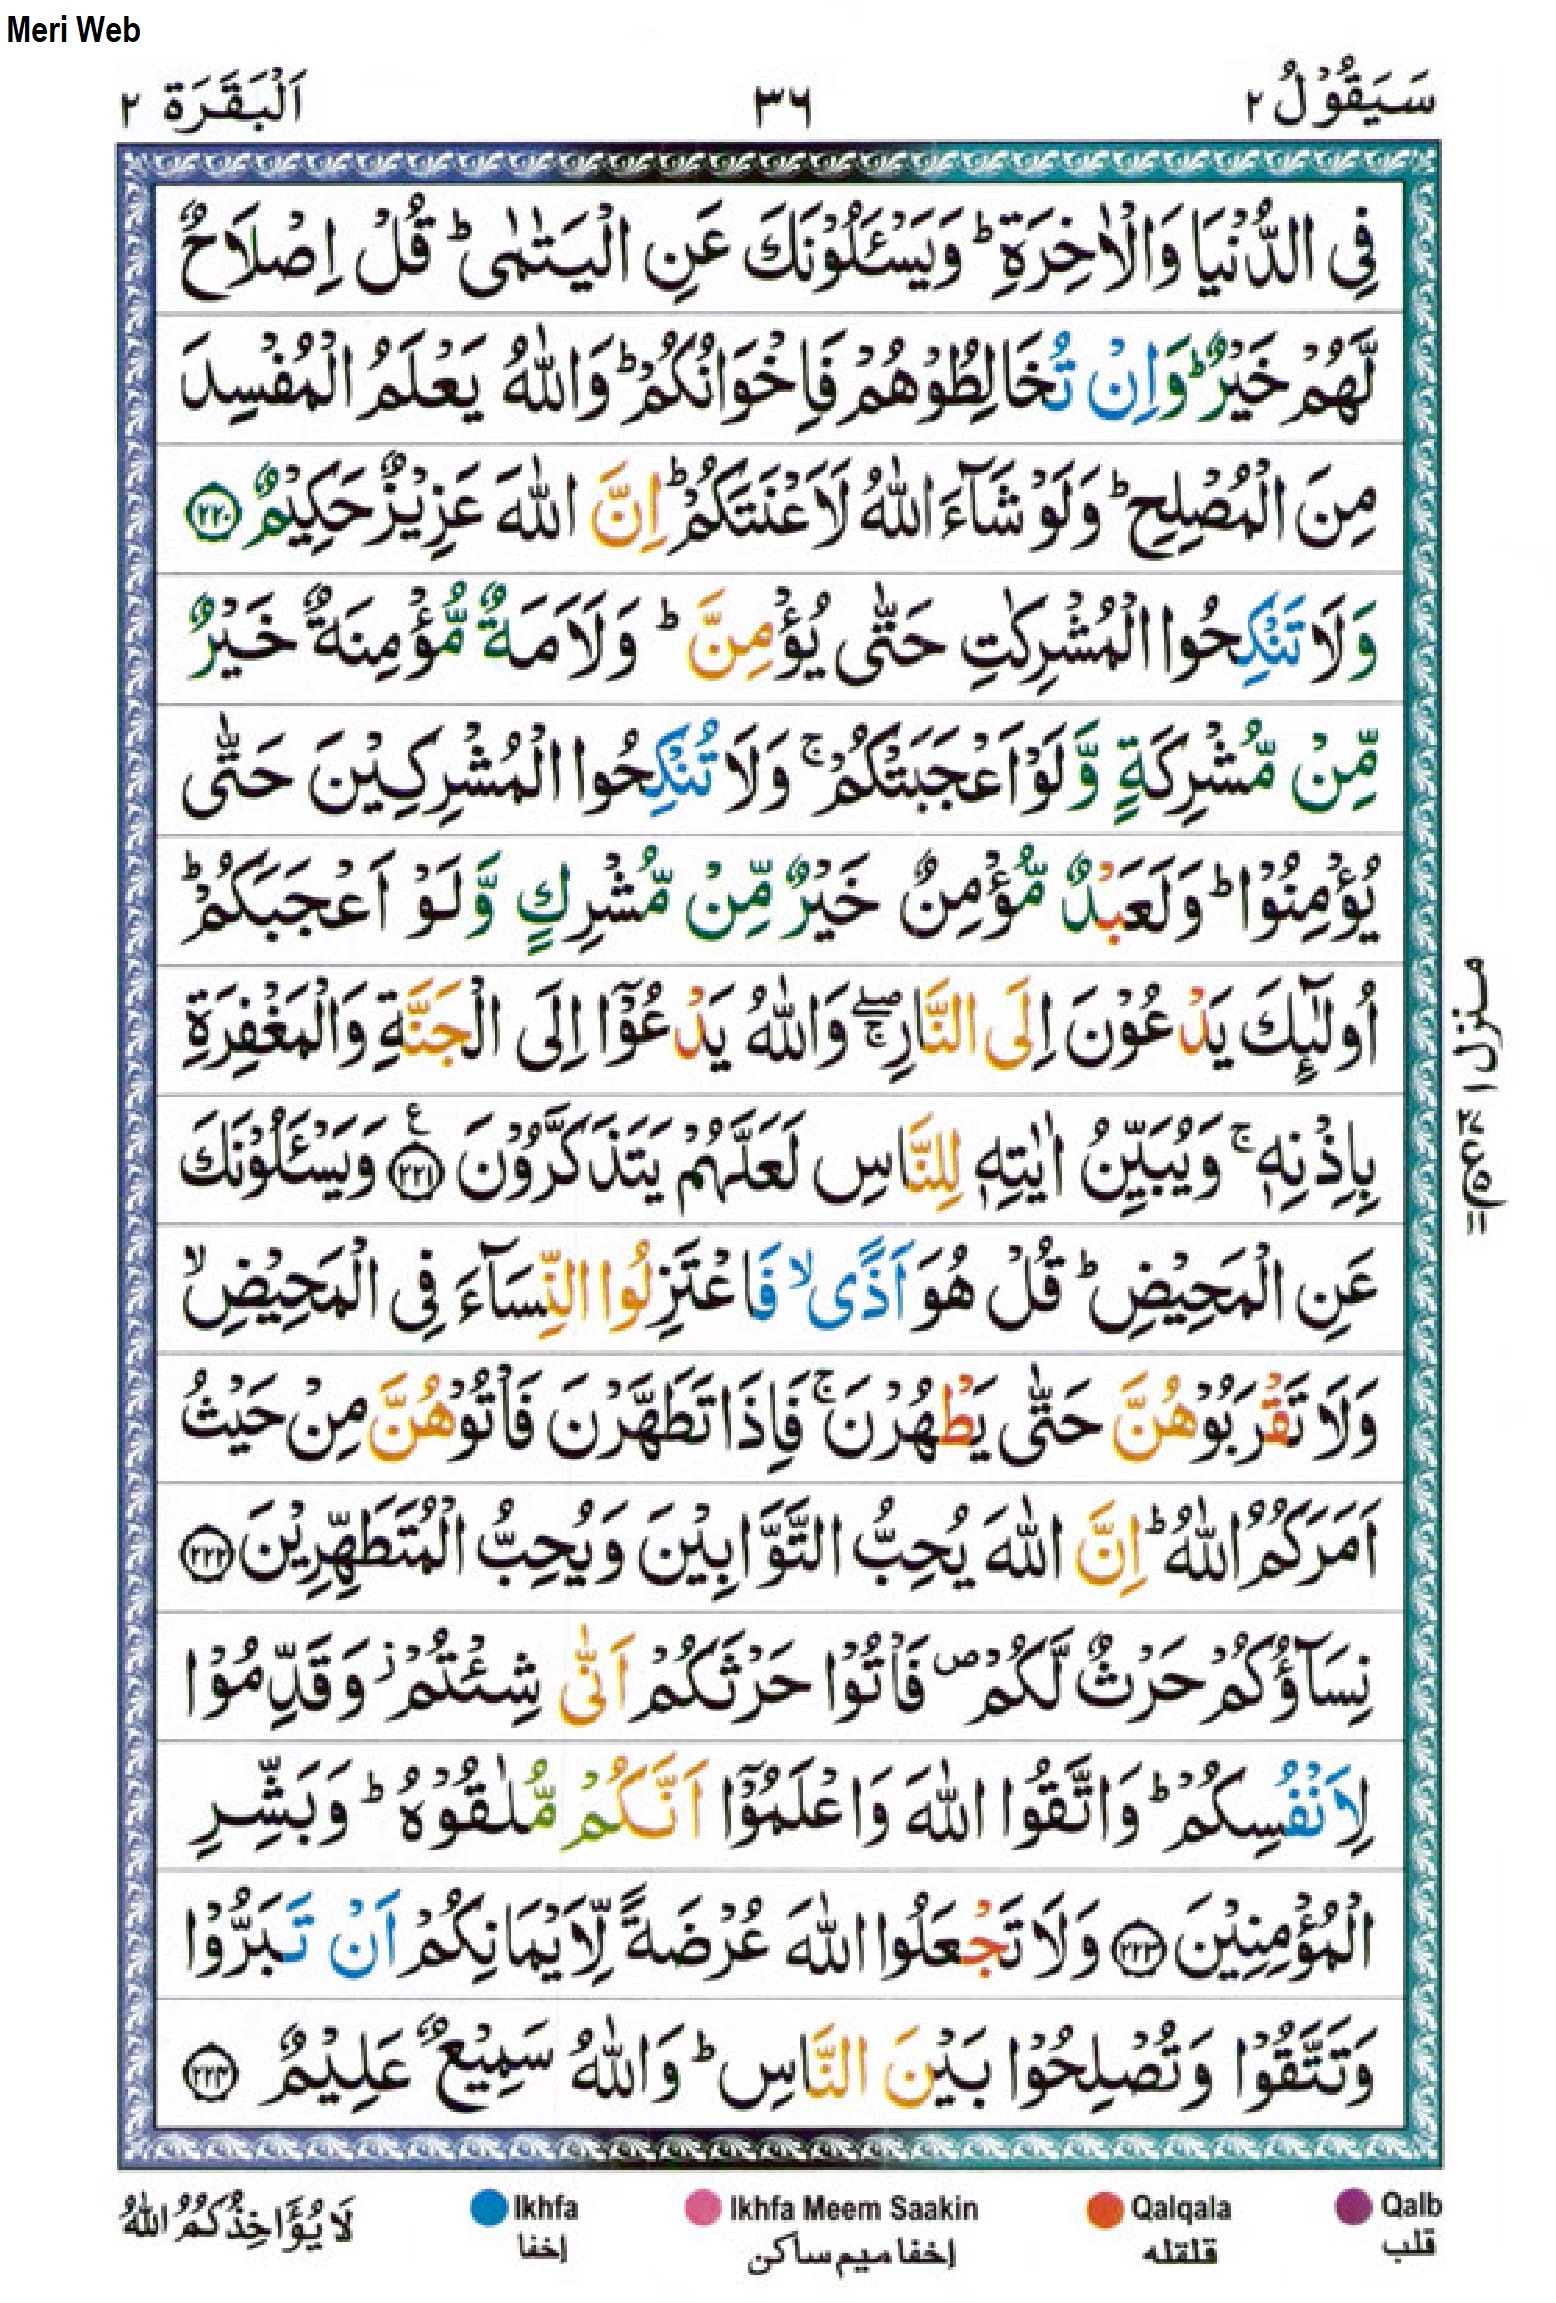 Meri Web
سَيَقُوْلُ ٢ ٣٦ اَلْبَقَرَة ٢
فِى الدُّنْيَا وَالْاٰخِرَةِ ؕ وَيَسْـَٔلُوْنَكَ عَنِ الْيَتٰمٰى ؕ قُلْ اِصْلَاحٌ
لَّهُمْ خَيْرٌ ؕ وَاِنْ تُخَالِطُوْهُمْ فَاِخْوَانُكُمْ ؕ وَاللّٰهُ يَعْلَمُ الْمُفْسِدَ
مِنَ الْمُصْلِحِ ؕ وَلَوْ شَآءَ اللّٰهُ لَاَعْنَتَكُمْ ؕ اِنَّ اللّٰهَ عَزِيْزٌ حَكِيْمٌ ٢٢٠
وَلَا تَنْكِحُوا الْمُشْرِكٰتِ حَتّٰى يُؤْمِنَّ ؕ وَلَاَمَةٌ مُّؤْمِنَةٌ خَيْرٌ
مِّنْ مُّشْرِكَةٍ وَّلَوْ اَعْجَبَتْكُمْ ۚ وَلَا تُنْكِحُوا الْمُشْرِكِيْنَ حَتّٰى
يُؤْمِنُوْا ؕ وَلَعَبْدٌ مُّؤْمِنٌ خَيْرٌ مِّنْ مُّشْرِكٍ وَّلَوْ اَعْجَبَكُمْ ؕ
اُولٰٓئِكَ يَدْعُوْنَ اِلَى النَّارِ ۖۚ وَاللّٰهُ يَدْعُوْٓا اِلَى الْجَنَّةِ وَالْمَغْفِرَةِ
بِاِذْنِهٖ ۚ وَيُبَيِّنُ اٰيٰتِهٖ لِلنَّاسِ لَعَلَّهُمْ يَتَذَكَّرُوْنَ ٢٢١ ع وَيَسْـَٔلُوْنَكَ
عَنِ الْمَحِيْضِ ؕ قُلْ هُوَ اَذًى ۙ فَاعْتَزِلُوا النِّسَآءَ فِى الْمَحِيْضِ ۙ
وَلَا تَقْرَبُوْهُنَّ حَتّٰى يَطْهُرْنَ ۚ فَاِذَا تَطَهَّرْنَ فَاْتُوْهُنَّ مِنْ حَيْثُ
اَمَرَكُمُ اللّٰهُ ؕ اِنَّ اللّٰهَ يُحِبُّ التَّوَّابِيْنَ وَيُحِبُّ الْمُتَطَهِّرِيْنَ ٢٢٢
نِسَآؤُكُمْ حَرْثٌ لَّكُمْ ص فَاْتُوْا حَرْثَكُمْ اَنّٰى شِئْتُمْ ز وَقَدِّمُوْا
لِاَنْفُسِكُمْ ؕ وَاتَّقُوا اللّٰهَ وَاعْلَمُوْٓا اَنَّكُمْ مُّلٰقُوْهُ ؕ وَبَشِّرِ
الْمُؤْمِنِيْنَ ٢٢٣ وَلَا تَجْعَلُوا اللّٰهَ عُرْضَةً لِّاَيْمَانِكُمْ اَنْ تَبَرُّوْا
وَتَتَّقُوْا وَتُصْلِحُوْا بَيْنَ النَّاسِ ؕ وَاللّٰهُ سَمِيْعٌ عَلِيْمٌ ٢٢٤
منزل ١
لَا يُؤَاخِذُكُمُ اللّٰهُ
Ikhfa Ikhfa Meem Saakin Qalqala Qalb
إخفا إخفا ميم ساكن قلقله قلب